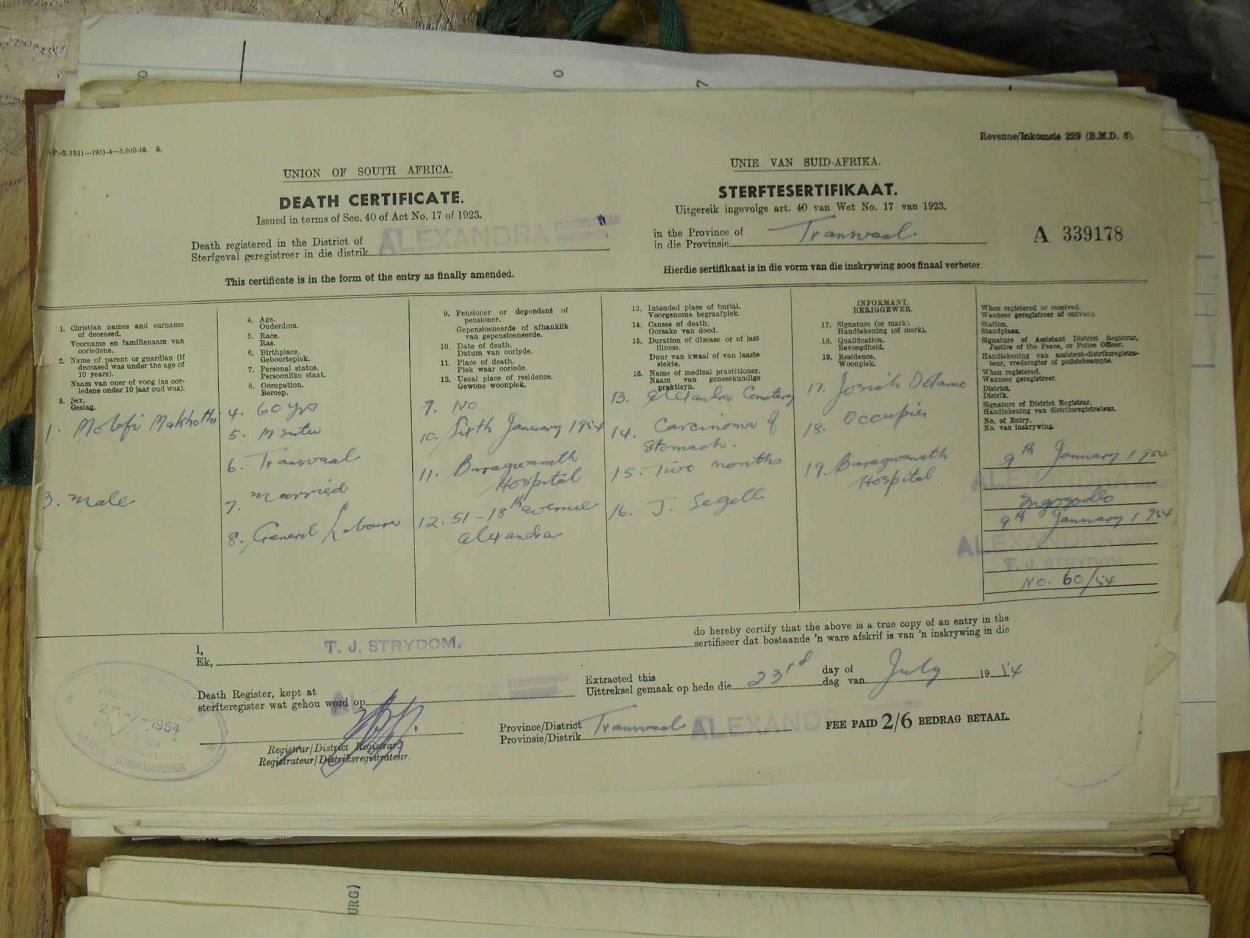 Revenue/Inkomste 229 (B.M.D. 6).
UNION OF SOUTH AFRICA.
DEATH CERTIFICATE.
Issued in terms of Sec. 40 of Act No. 17 of 1923.
UNIE VAN SUID-AFRIKA.
STERFTESERTIFIKAAT.
Uitgereik ingevolge art. 40 van Wet No. 17 van 1923.
Death registered in the District of
Sterfgeval geregistreer in die distrik ALEXANDRA
in the Province of
in die Provinsie Transvaal
A 339178
This certificate is in the form of the entry as finally amended.
Hierdie sertifikaat is in die vorm van die inskrywing soos finaal verbeter.
1. Christian names and surname
of deceased.
Voorname en familienaam van
oorledene.
2. Name of parent or guardian (if
deceased was under the age of
10 years).
Naam van ouer of voog (as oor-
ledene onder 10 jaar oud was).
3. Sex.
Geslag.
1. Molefi
3. Male
4. Age.
Ouderdom.
5. Race.
Ras.
6. Birthplace.
Geboorteplek.
7. Personal status.
Persoonlike staat.
8. Occupation.
Beroep.
4. 60 yrs
5. Msutu
6. Transvaal
7. Married
8. General Labourer
9. Pensioner or dependent of
pensioner.
Gepensioeneerde of afhanklik
van gepensioeneerde.
10. Date of death.
Datum van oorlyde.
11. Place of death.
Plek waar oorlede.
12. Usual place of residence.
Gewone woonplek.
9. No
10. Sixth January 1954
11. Baragwanath
Hospital
12. 51 - 18th avenue
Alexandra
13. Intended place of burial.
Voorgenome begraafplek.
14. Causes of death.
Oorsake van dood.
15. Duration of disease or of last
illness.
Duur van kwaal of van laaste
siekte.
16. Name of medical practitioner.
Naam van geneeskundige
praktisyn.
13. Alexandra Cemetery
14. Carcinoma of
Stomach.
15. Two months
16. J. Segell
INFORMANT.
BERIGGEWER.
17. Signature (or mark).
Handtekening (of merk).
18. Qualification.
Bevoegdheid.
19. Residence.
Woonplek.
17. Josiah
18. Occupier
19. Baragwanath
Hospital
When registered or received.
Wanneer geregistreer of ontvang.
Station.
Standplaas.
Signature of Assistant District Registrar,
Justice of the Peace, or Police Officer.
Handtekening van assistent-distriksregistra-
teur, vrederegter of polisiebeampte.
When registered.
Wanneer geregistreer.
District.
Distrik.
Signature of District Registrar.
Handtekening van distriksregistrateur.
No. of Entry.
No. van inskrywing.
9th January 1954
ALEXANDRA
9th January 1954
ALEXANDRA
T. J. STRYDOM
No. 60/54
I,
Ek, T. J. STRYDOM,
do hereby certify that the above is a true copy of an entry in the
sertifiseer dat bostaande 'n ware afskrif is van 'n inskrywing in die
Death Register, kept at
sterfteregister wat gehou word op ALEXANDRA
Extracted this
Uittreksel gemaak op hede die 23rd
day of
dag van July 1954
Registrar/District Registrar.
Registrateur/Distriksregistrateur.
Province/District
Provinsie/Distrik Transvaal ALEXANDRA
FEE PAID 2/6 BEDRAG BETAAL.
-7-1954
COMMISSIONER
URG)